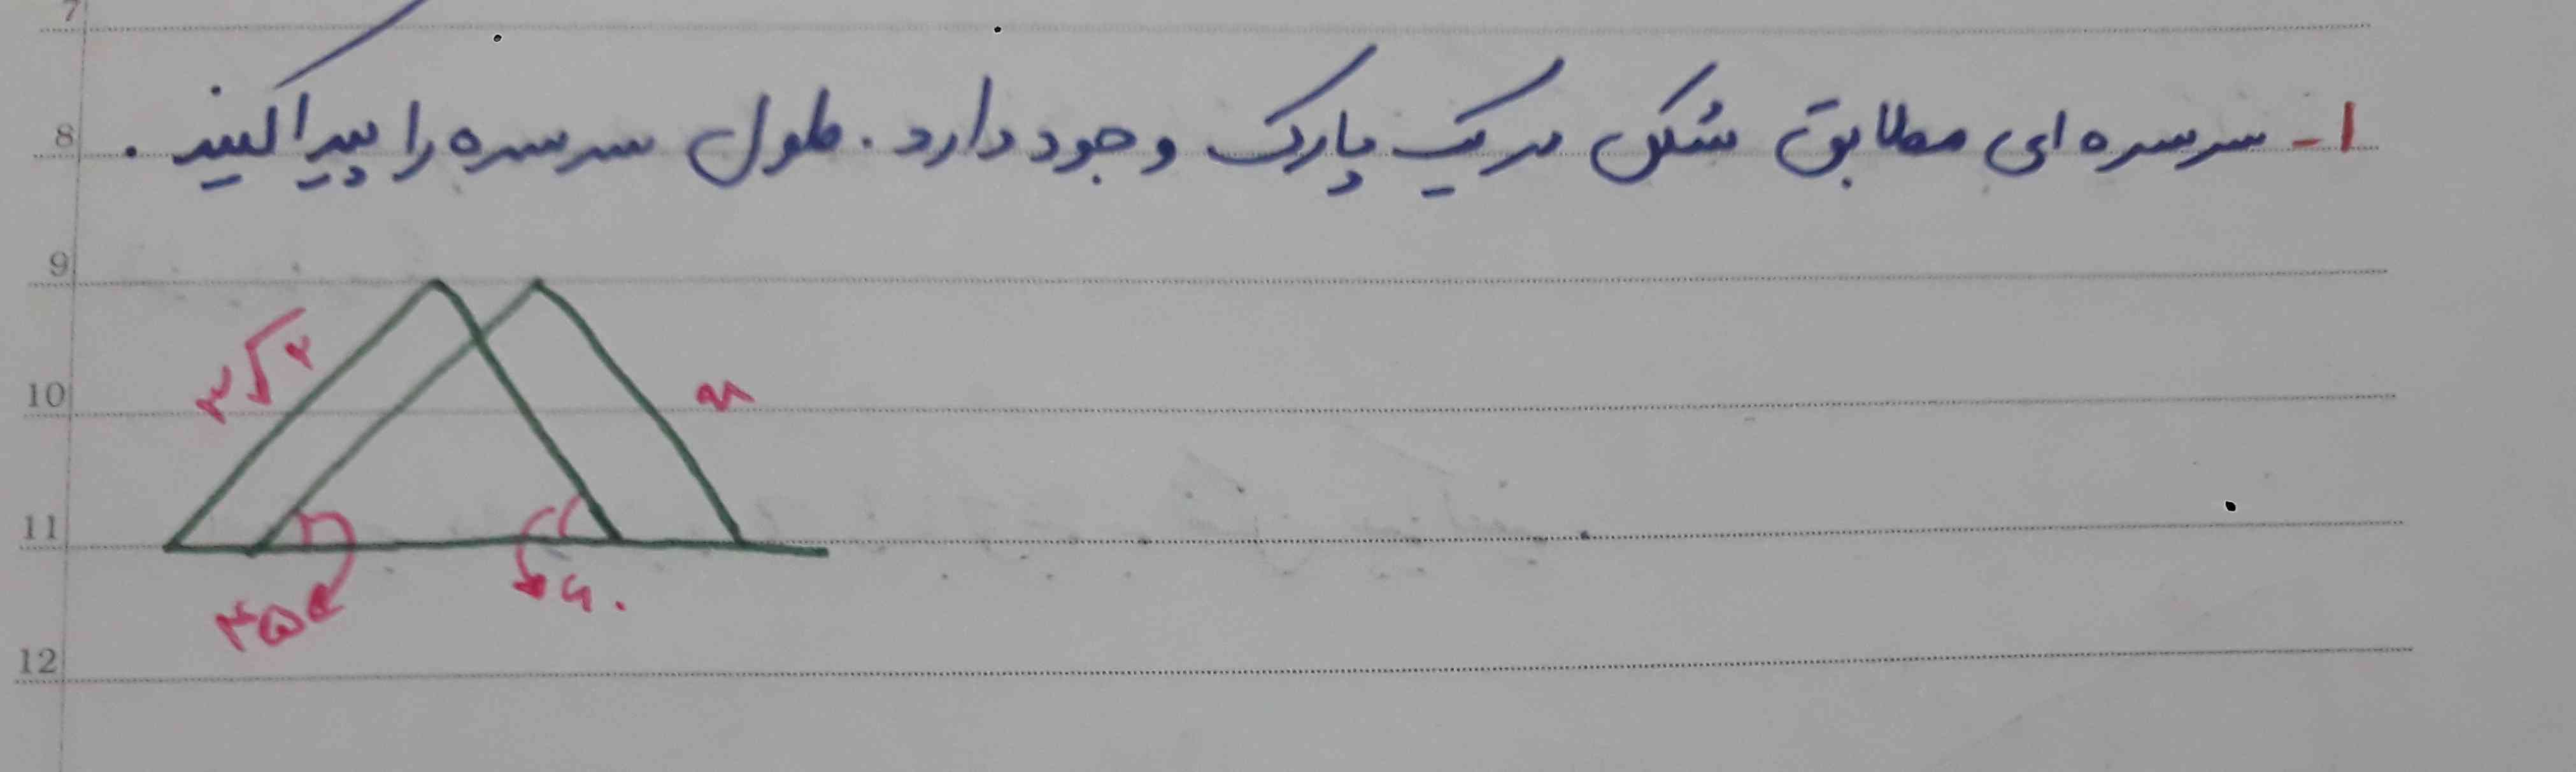 7
8 ۱- سرسره ای مطابق شکل در یک پارک وجود دارد. طول سرسره را پیدا کنید.
9
۳√۲
10 x
11
۴۵ ۶۰
12